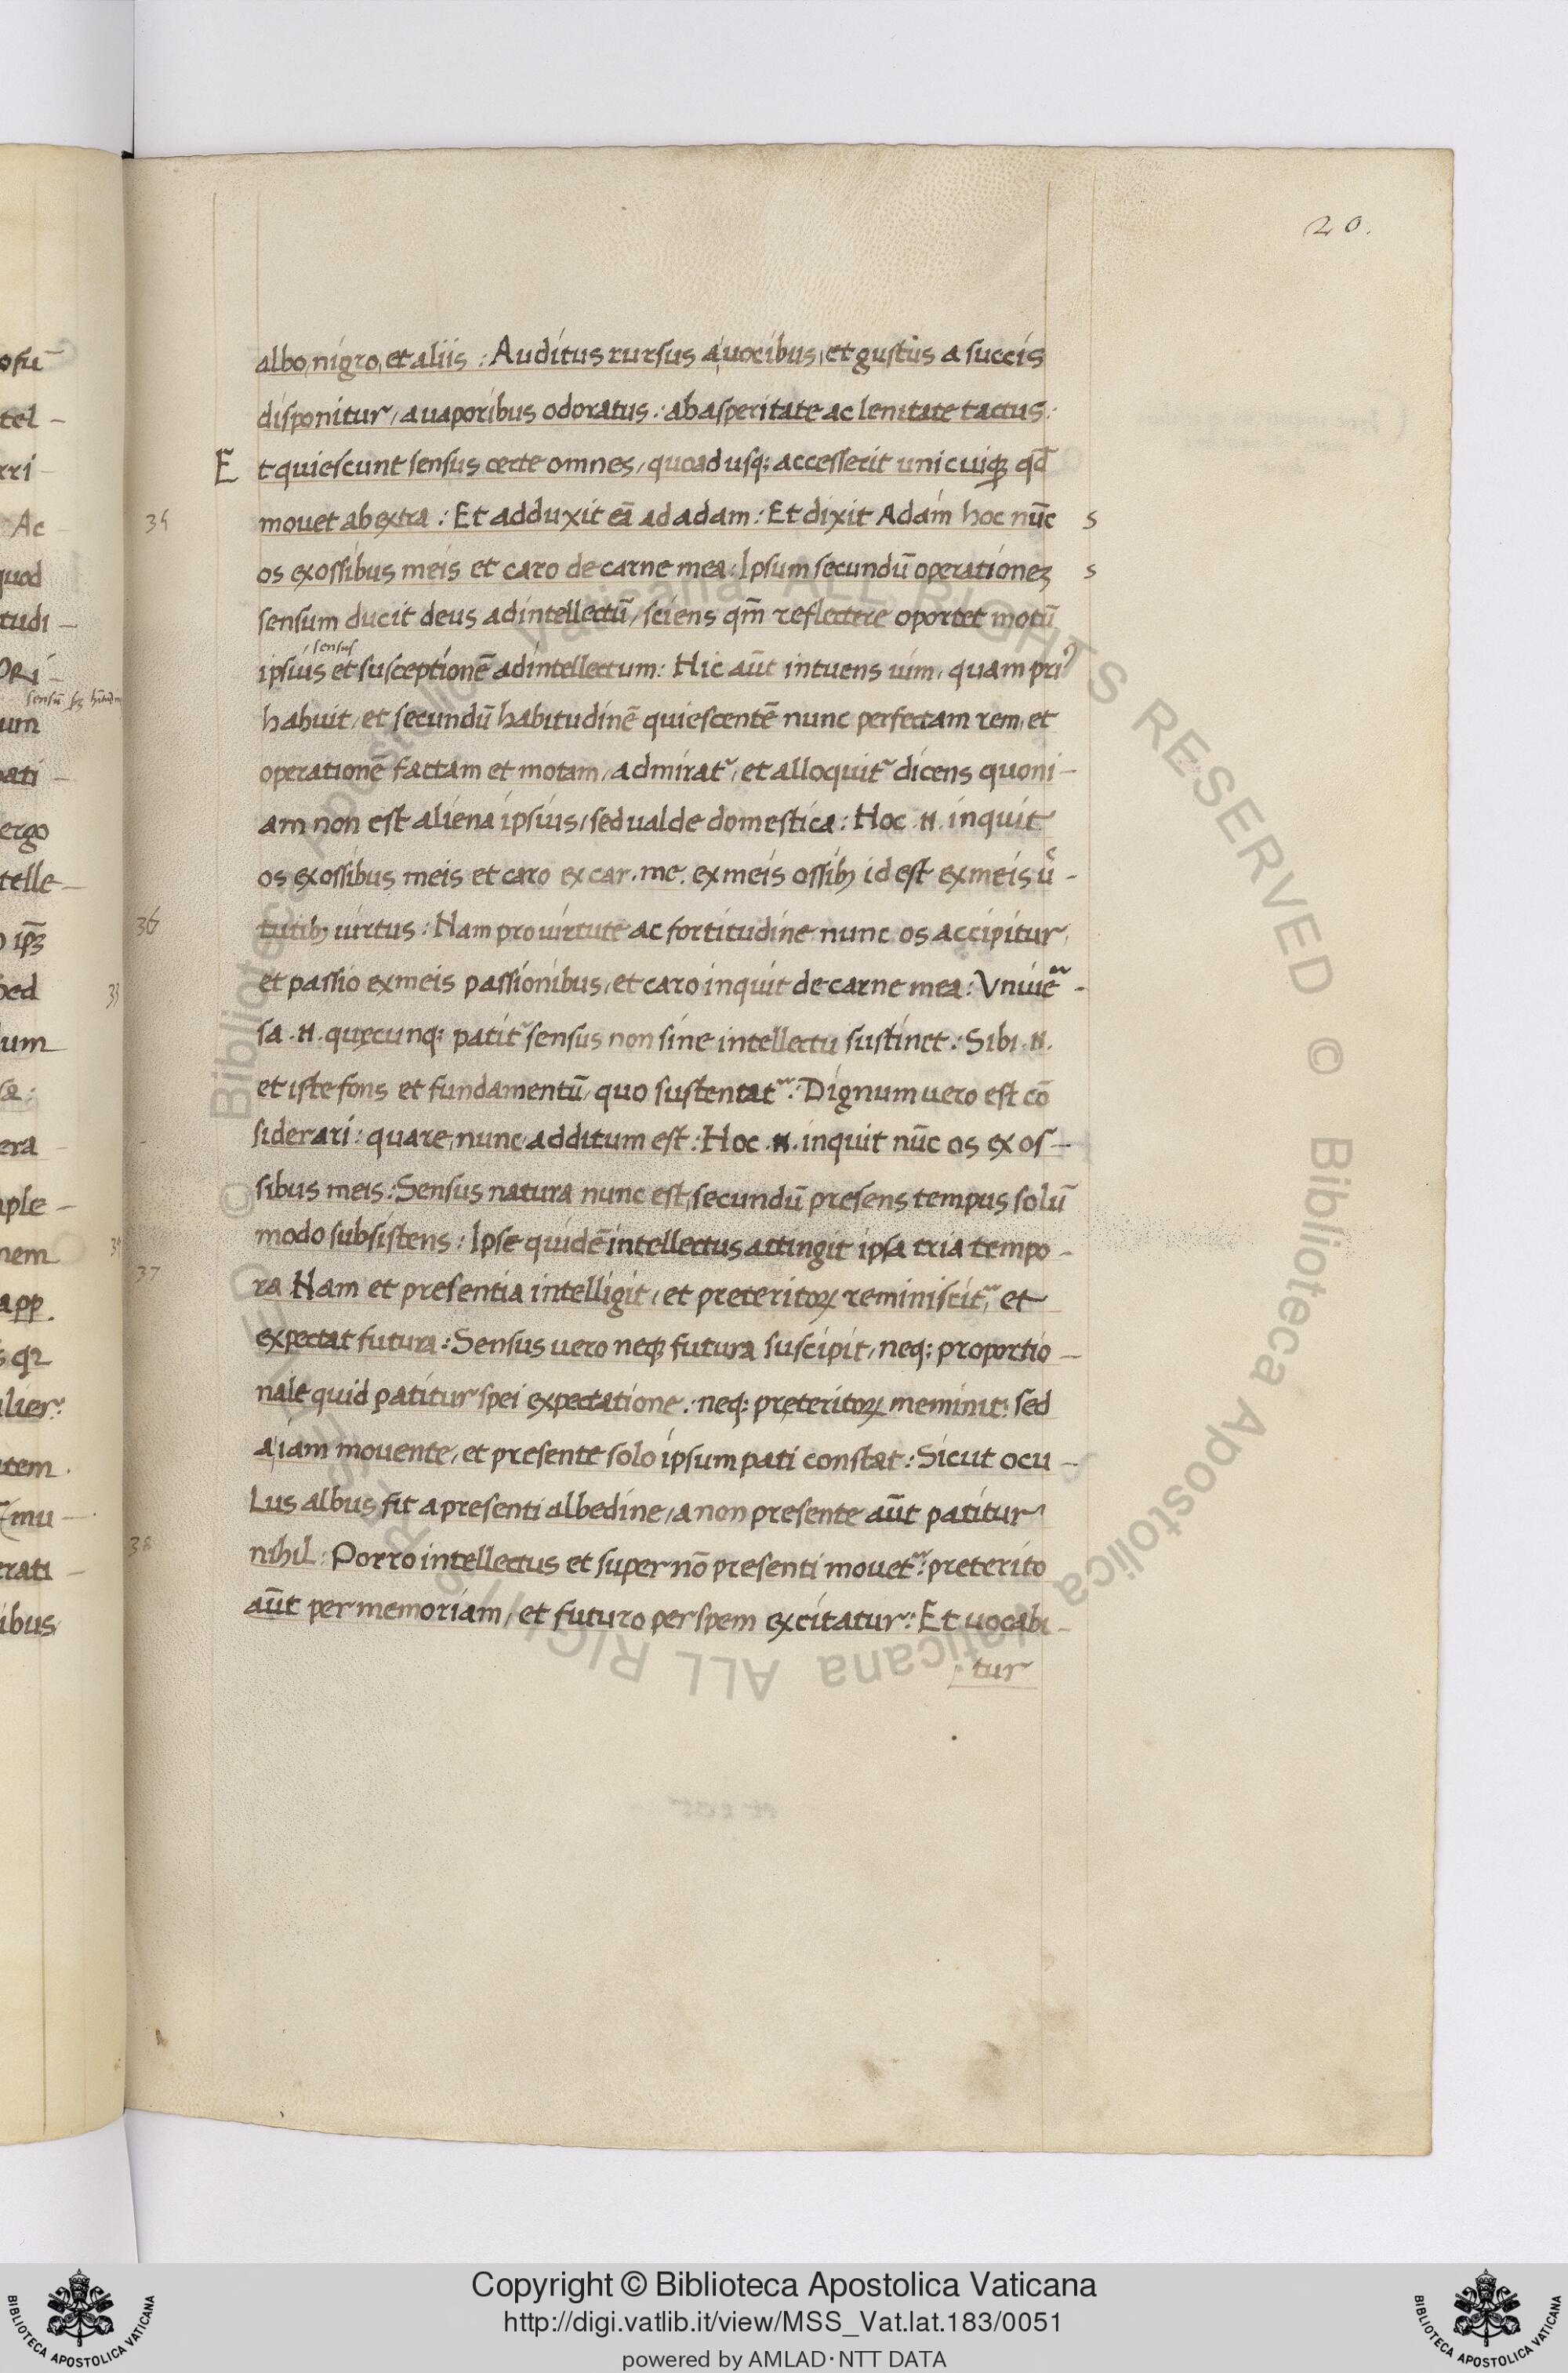 20.
albo, nigro, et aliis : Auditus rursus a uocibus, et gustus a succis
disponitur, a uaporibus odoratus : ab asperitate ac lenitate tactus :
Et quiescunt sensus certe omnes, quoad usq; accesserit unicuiqꝫ qd̄
35 mouet ab extra : Et adduxit eā ad adam : Et dixit Adam hoc nūc s
os ex ossibus meis et caro de carne mea : Ipsum secundū operationeȝ s
sensum ducit deus ad intellectū, sciens qm̄ reflectere oportet motū
sensus
ipsius et susceptionē ad intellectum : Hic aūt intuens uim, quam pri⁹
habuit, et secundū habitudinē quiescentē nunc perfectam rem, et
operationē factam et motam, admirat᷑, et alloquit᷑ dicens quoni-
am non est aliena ipsius, sed ualde domestica : Hoc .n. inquit
os ex ossibus meis et caro ex car. me. ex meis ossibꝫ id est ex meis uͥ-
36 tutibꝫ uirtus : Nam pro uirtute ac fortitudine nunc os accipitur,
et passio ex meis passionibus, et caro inquit de carne mea : Vniue᷑-
sa .n. quęcunq; patit᷑ sensus non sine intellectu sustinet : Sibi .n.
et iste fons et fundamentū, quo sustentat᷑ : Dignum uero est cō
siderari : quare, nunc, additum est : Hoc .n. inquit nūc os ex os-
sibus meis : Sensus natura nunc est, secundū presens tempus solū
modo subsistens : Ipse quidē intellectus attingit ipsa tria tempo-
37 ra Nam et presentia intelligit, et preteritoꝝ reminiscit᷑, et
expectat futura : Sensus uero neqꝫ futura suscipit, neq; proportio-
nale quid patitur spei expectatione : neq; pręteritoꝝ meminit : sed
a iam mouente, et presente solo ipsum pati constat : Sicut ocu-
lus albus fit a presenti albedine, a non presente aūt patitur
38 nihil : Porro intellectus et super nō presenti mouet᷑ : preterito
aūt per memoriam, et futuro per spem excitatur : Et uocabi-
tur
ofū
tel-
rri-
Ac
quod
tudi-
ORi-
um
pati-
ergo
telle-
sed
33
um
era
ple-
nem
app.
lier:
tem.
mu-
rati-
ibus
© Biblioteca Apostolica Vaticana ALL RIGHTS RESERVED © Biblioteca Apostolica Vaticana ALL RIGHTS RESERVED
Copyright © Biblioteca Apostolica Vaticana
http://digi.vatlib.it/view/MSS_Vat.lat.183/0051
powered by AMLAD·NTT DATA
BIBLIOTECA APOSTOLICA VATICANA
BIBLIOTECA APOSTOLICA VATICANA